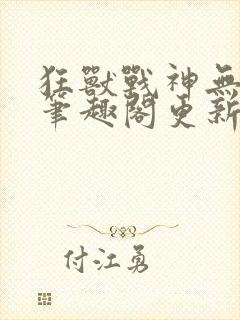 狂獸戰神無
筆趣閣更新
付江勇